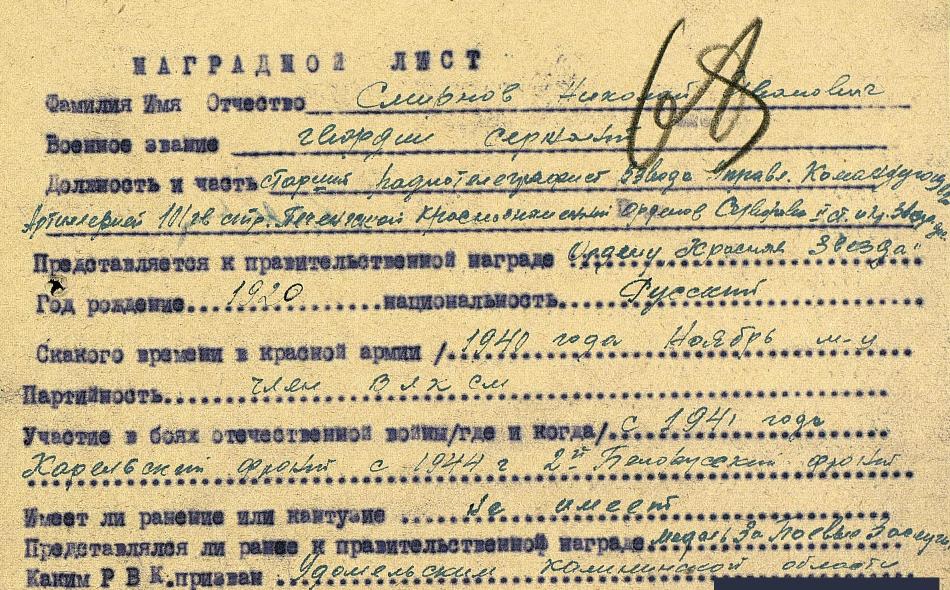 НАГРАДНОЙ ЛИСТ
Фамилия Имя Отчество Смирнов Николай Иванович
Военное звание гвардии сержант
Должность и часть старший радиотелеграфист взвода управл. Командующего
Артиллерией 101 гв стр. Печенгской Краснознаменной орденов Суворова II ст. и Кр. Звезда див.
Представляется к правительственной награде Ордену "Красная Звезда"
Год рождение...1920...национальность...Русский
Скакого времени в красной армии /.1940 года Ноябрь м-ц
Партийность...член ВЛКСМ
Участие в боях отечественной войны/где и когда/.с 1941 года
Карельский фронт с 1944 г 2й Белорусский фронт
Имеет ли ранение или кантузие ....Не имеет
Представлялся ли ранее к правительственной награде.медаль За Боевые Заслуги
Каким Р В К.призван .Удомельским Калининской области